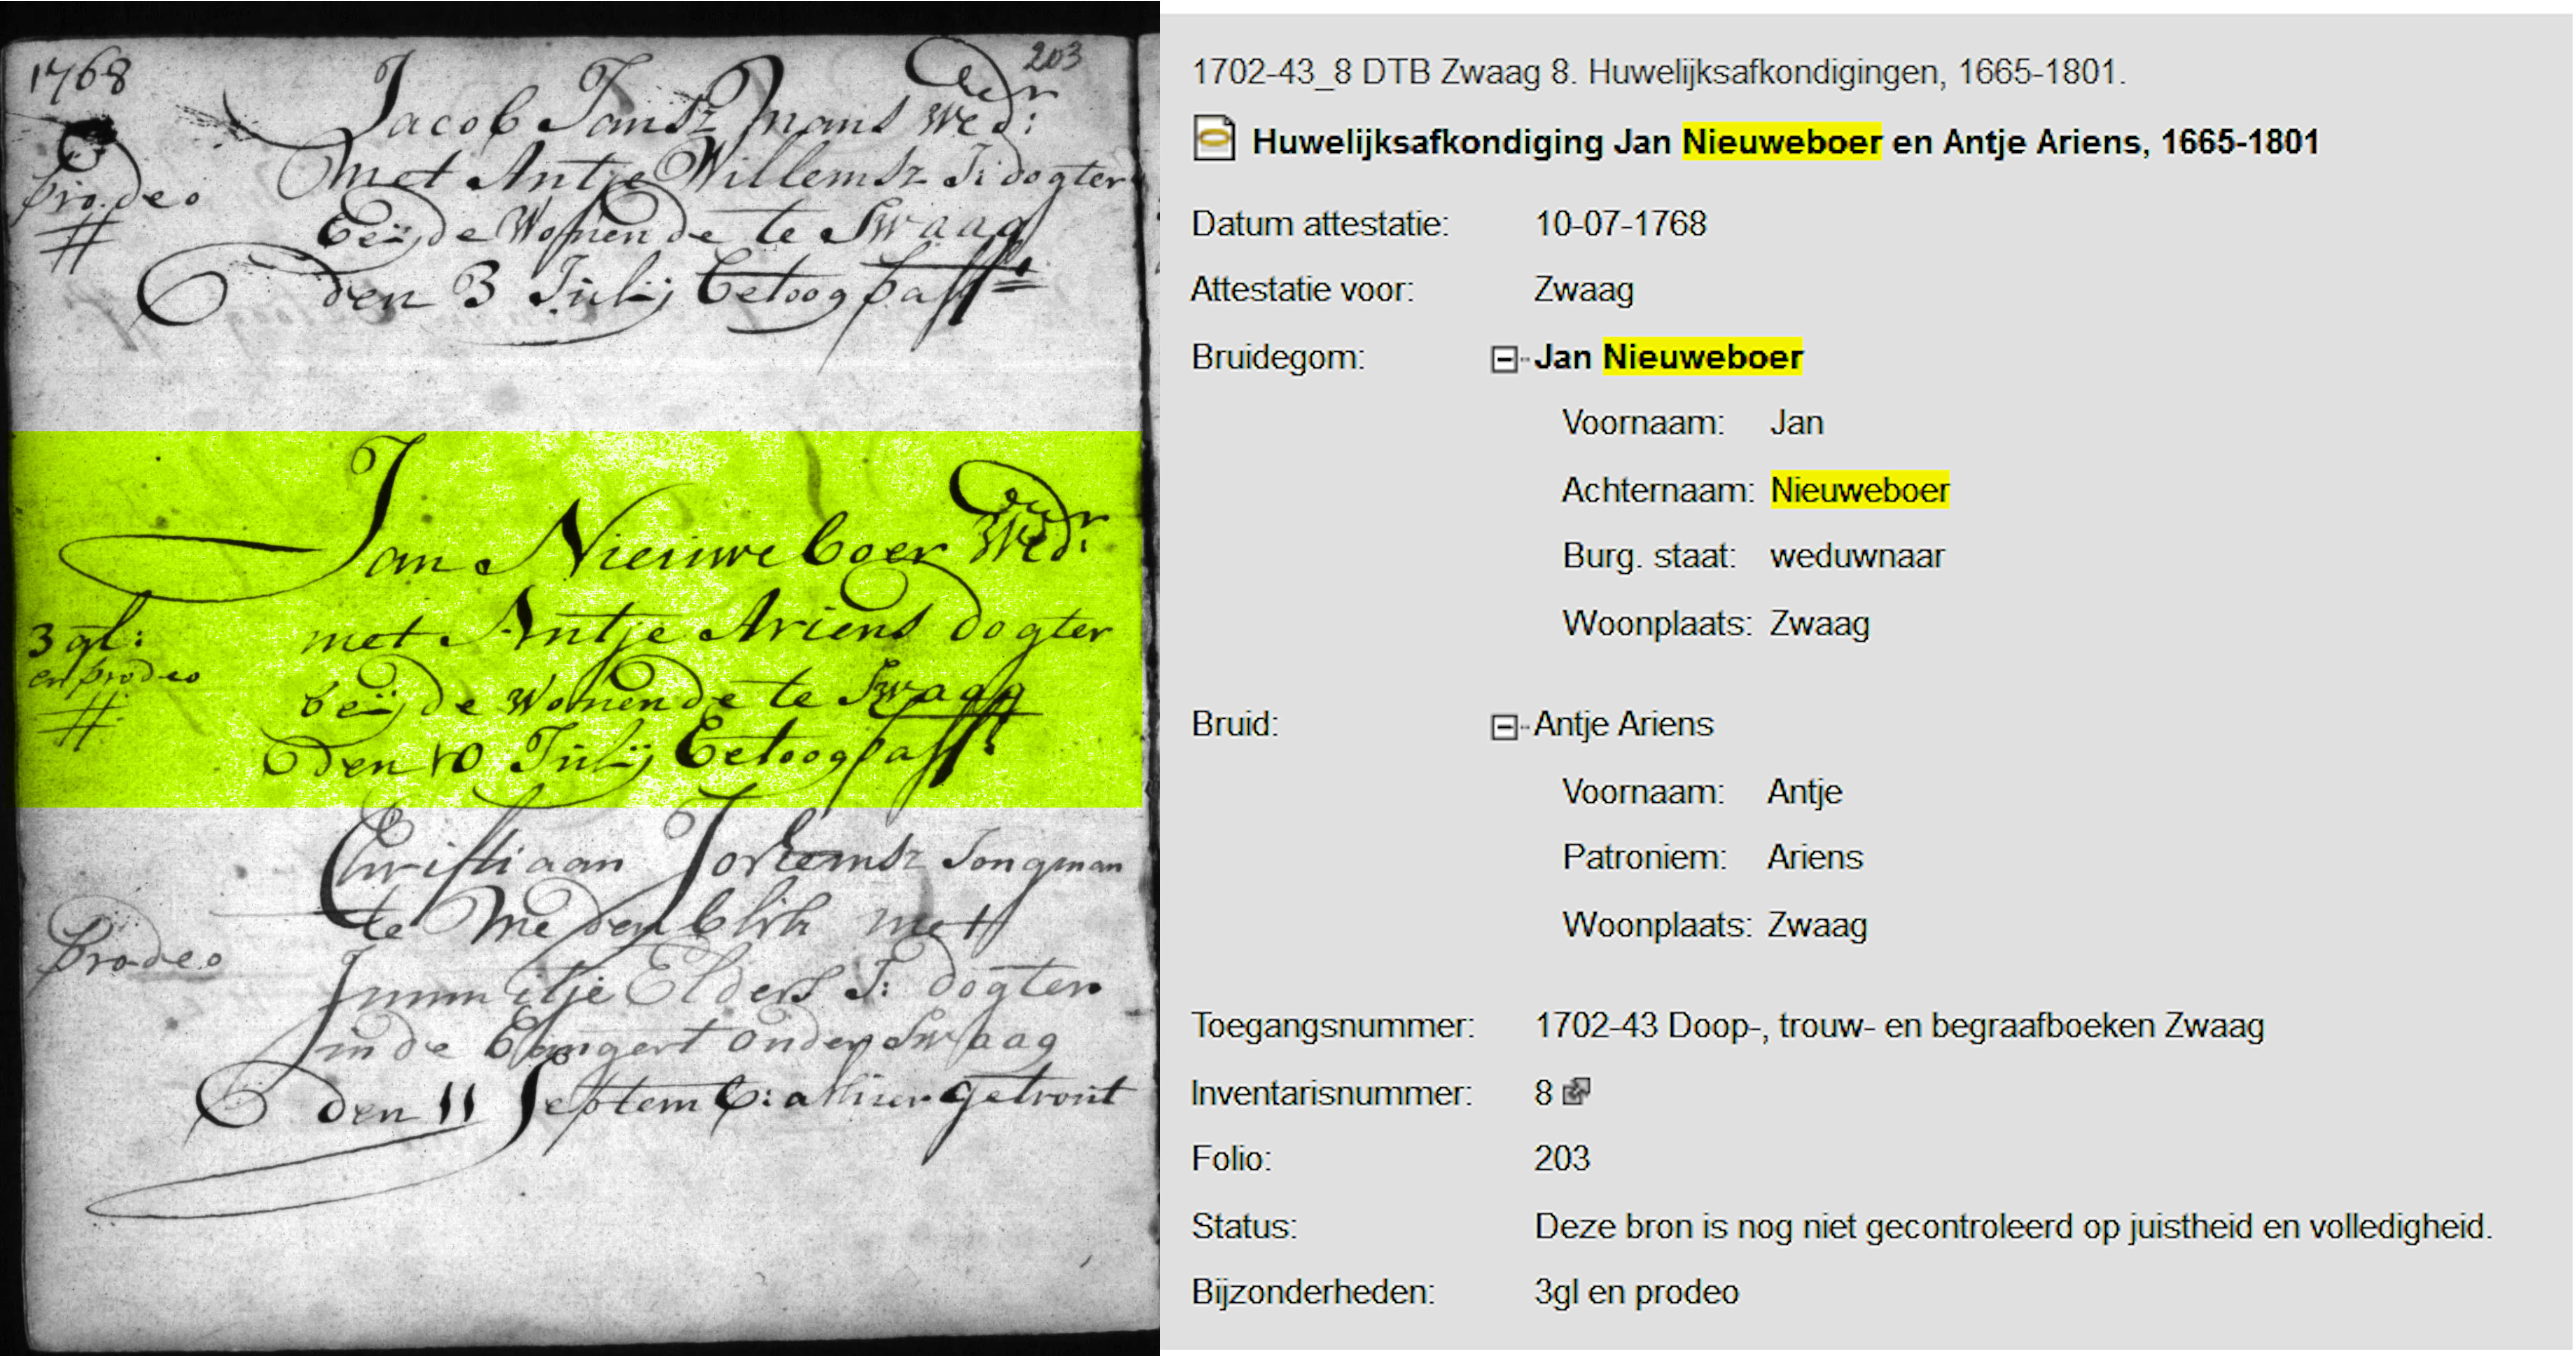 1768
203
Jacob Jansz Mans Wedr:
Met Antje Willemsz J: dogter
prodeo
Beijde Wonende te Swaag
den 3 Julij betoog pass
Jan Nieuweboer Wedr:
3 gl:
met Antje Ariens dogter
en prodeo
beijde Wonende te Swaag
den 10 Julij Betoog pass
Christiaan Jongman
te Medenblik met
prodeo
Elders J: dogter
in de Bangert onder Swaag
den 11 Septemb: alhier getrout
1702-43_8 DTB Zwaag 8. Huwelijksafkondigingen, 1665-1801.
Huwelijksafkondiging Jan Nieuweboer en Antje Ariens, 1665-1801
Datum attestatie: 10-07-1768
Attestatie voor: Zwaag
Bruidegom: Jan Nieuweboer
Voornaam: Jan
Achternaam: Nieuweboer
Burg. staat: weduwnaar
Woonplaats: Zwaag
Bruid: Antje Ariens
Voornaam: Antje
Patroniem: Ariens
Woonplaats: Zwaag
Toegangsnummer: 1702-43 Doop-, trouw- en begraafboeken Zwaag
Inventarisnummer: 8
Folio: 203
Status: Deze bron is nog niet gecontroleerd op juistheid en volledigheid.
Bijzonderheden: 3gl en prodeo